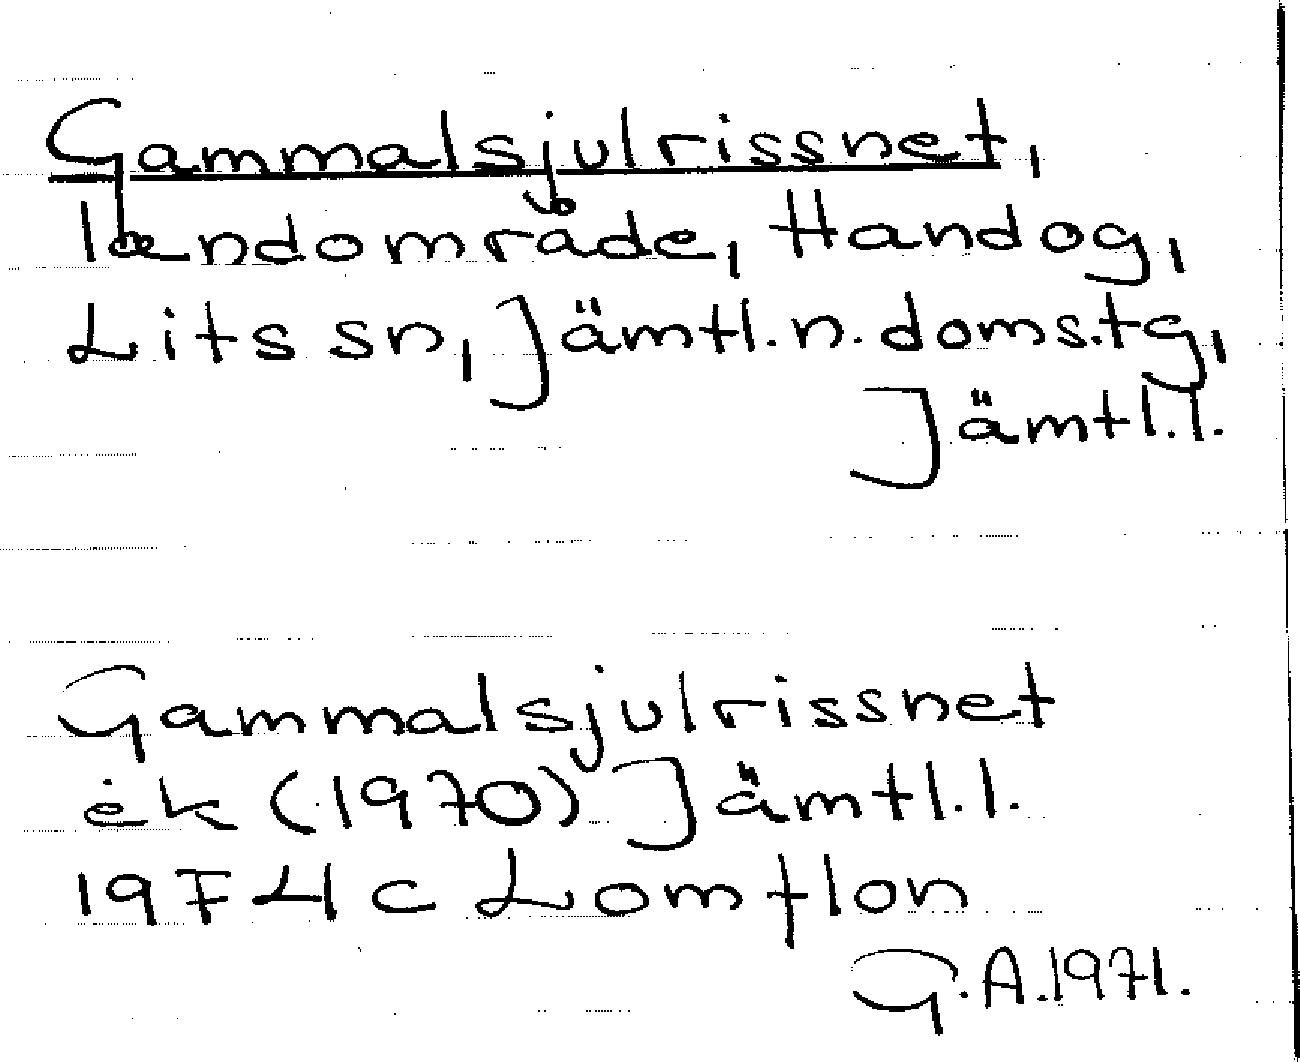 Gammalsjulrissnet,
landområde, Handog,
Lits sn, Jämtl.n.doms.tg,
Jämtl.l.
Gammalsjulrissnet
ek (1970) Jämtl.l.
19F4c Lomflon
G.A.1971.